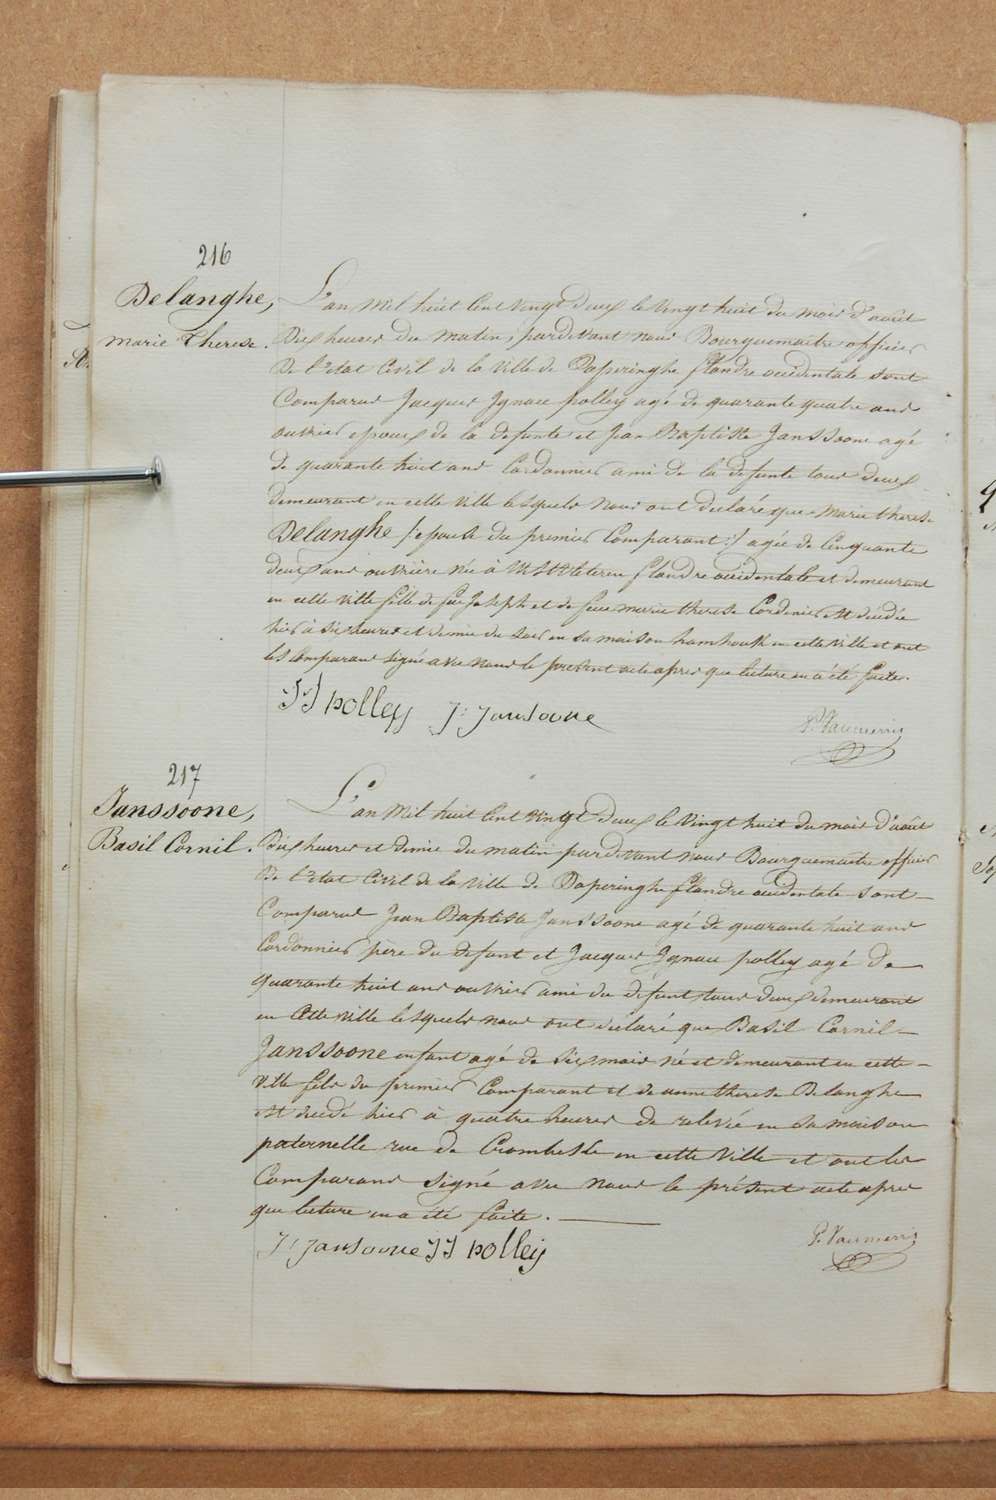 216
Delanghe,
marie Therese.
L'an Mil huit Cent vingt deux le vingt huit du mois d'août
Dix heures du matin, pardevant nous Bourguemaitre officier
De l'etat Civil de la ville de Poperinghe flandre occidentale sont
Comparus Jacques Ignace polley agé de quarante quatre ans
ouvrier epoux de la defunte et Jean Baptiste Janssoone agé
de quarante huit ans Cordonnier ami de la defunte tous deux
demeurant en cette ville lesquels nous ont declaré que marie therese
Delanghe /:epouse du premier Comparant:/ agée de Cinquante
deux ans ouvrière née à Westvleteren flandre occidentale et demeurant
en cette ville fille de feu Joseph et de feue marie therese Cordenier est décédée
hier à six heures et demie du soir en sa maison hamhouk en cette ville et ont
les Comparans signé avec nous le present acte apres que lecture en a été faite.
JJ polley J: Jansoone
P. Vanmerris
217
Janssoone,
Basil Cornil.
L'an Mil huit Cent vingt deux le vingt huit du mois d'août
Dix heures et demie du matin pardevant nous Bourguemaitre officier
De l'etat Civil de la ville de Poperinghe flandre occidentale sont
Comparus Jean Baptiste Janssoone agé de quarante huit ans
Cordonnier pere du defunt et Jacques Ignace polley agé de
quarante huit ans ouvrier ami du défunt tous deux demeurant
en Cette ville lesquels nous ont déclaré que Basil Cornil
Janssoone enfant agé de six mois né et demeurant en cette
ville fils du premier Comparant et de anne therese Delanghe
est decedé hier à quatre heures de relevée en sa maison
paternelle rue de Crombeke en cette ville et ont les
Comparans signé avec nous le présent acte apres
que lecture en a été faite.
J: Jansoone JJ polley
P. Vanmerris